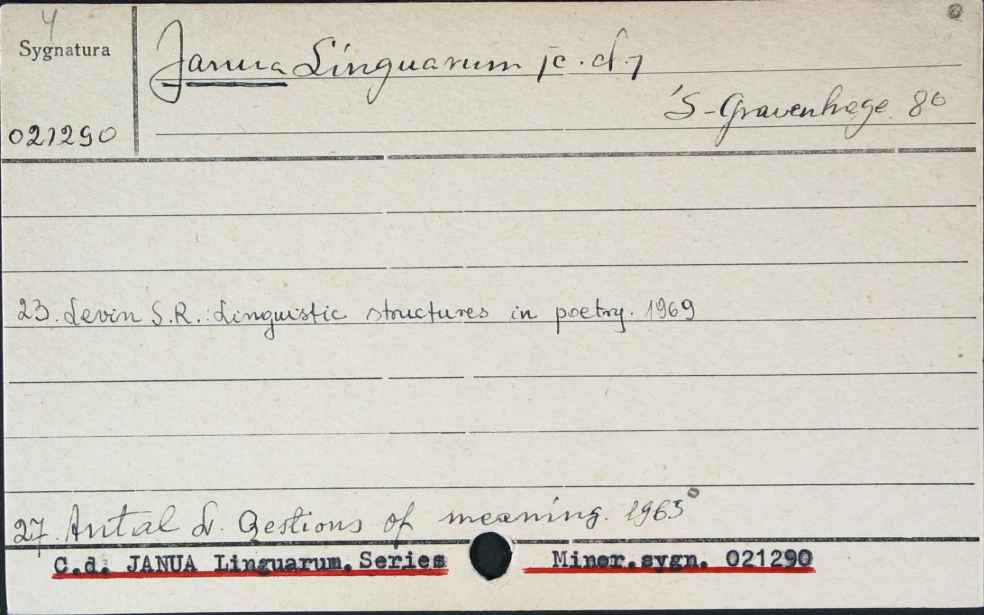 4
Sygnatura
021290
Janua Linguarum /c.d./
'S-Gravenhage. 8o
23. Levin S.R.: Linguistic structures in poetry. 1969
27. Antal L. Qestions of meaning. 1963
C.d. JANUA Linguarum. Series Minor.sygn. 021290